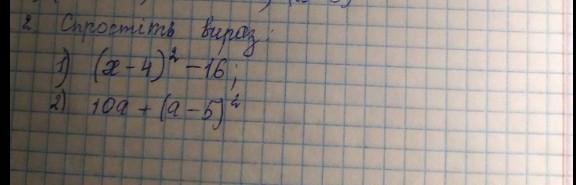 2. Спростіть вираз:
1) (x - 4)² - 16;
2) 10a + (a - 5)²